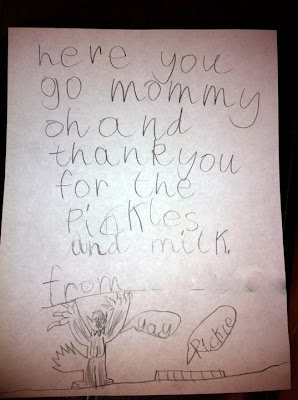 here you
go mommy
oh and
thankyou
for the
pickles
and milk.
from
yay
Pickle